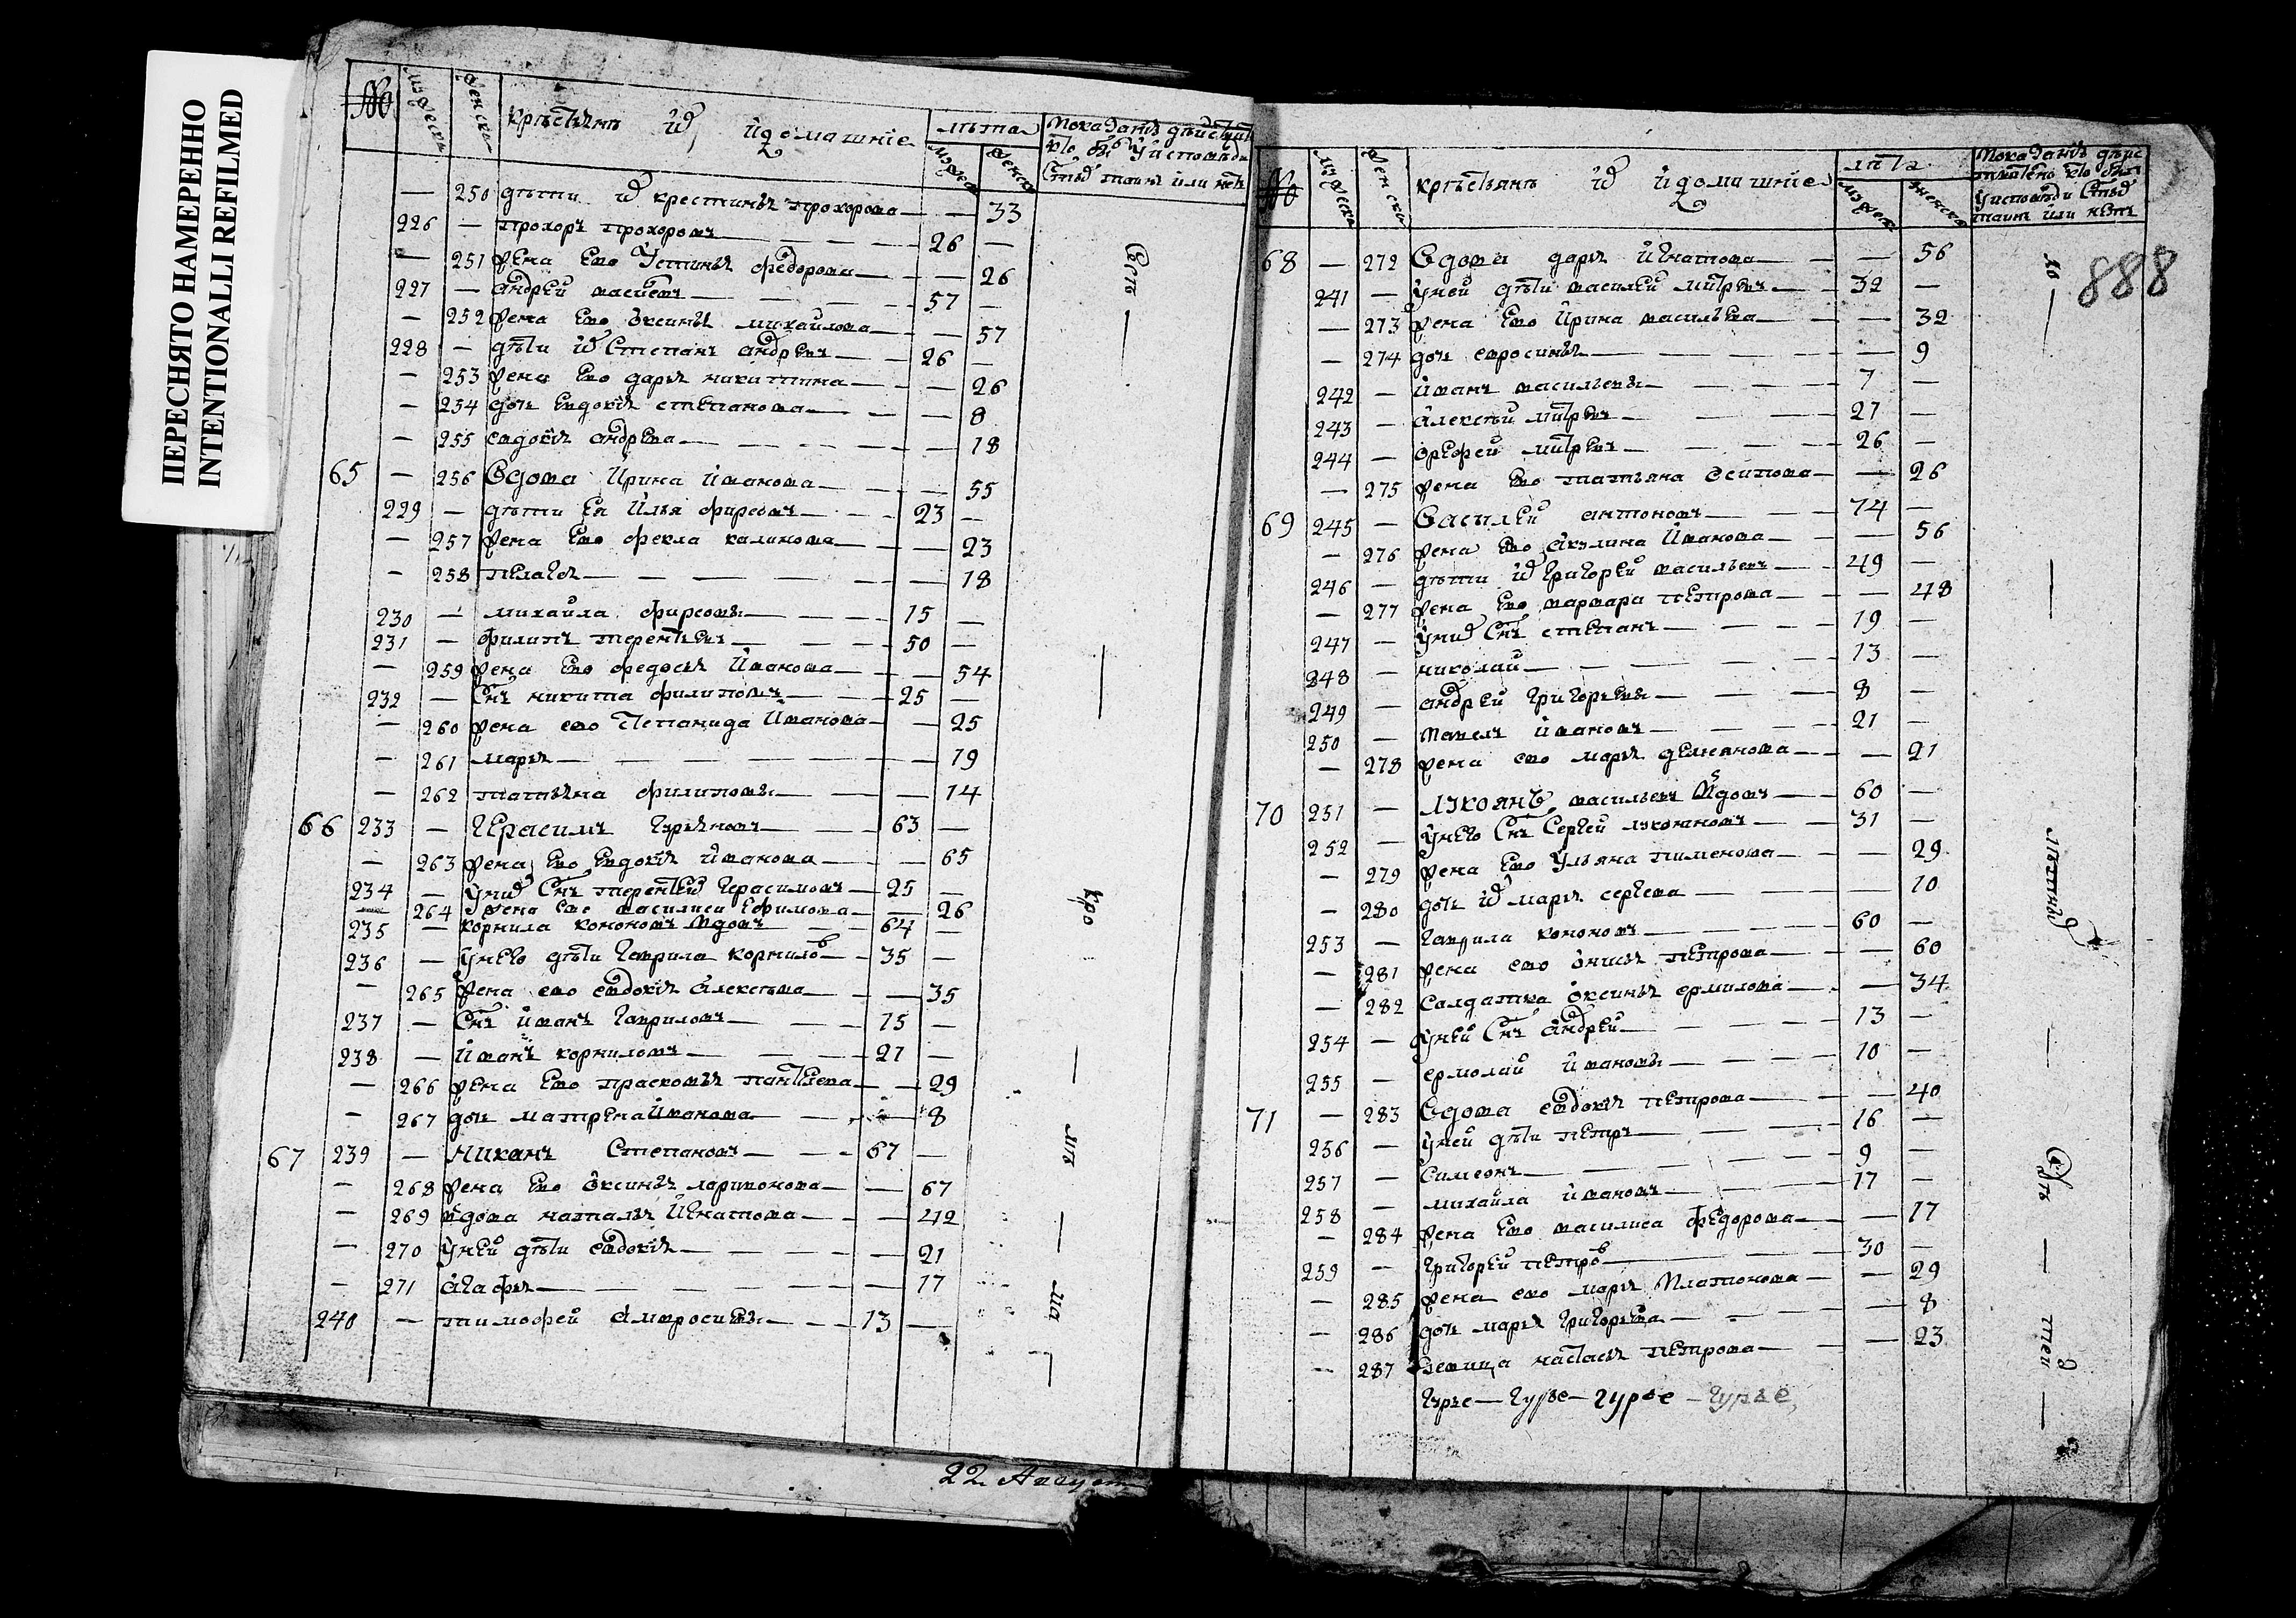 ПЕРЕСНЯТО НАМЕРЕННО
INTENTIONALLI REFILMED
№ мужеска женска крѣстьянъ и домашніе лѣта
мужеска женска
250 дѣти их крестинья прохорова 33
226 прохоръ прохоровъ 26
251 жена ево Устинья федорова 26
227 андрей 57
252 жена ево оксинья михайлова 57
228 дѣти их Степанъ андревъ 26
253 жена ево дарья никитина 26
254 дочь евдокія степанова 8
255 евдокія андрева 18
65 256 Вдова Ирина иванова 55
229 дѣти ея Илья фирсовъ 23
257 жена ево фекла калинова 23
258 пелагея 18
230 михайла фирсовы 15
231 филипъ терентьевъ 50
259 жена ево федосья Иванова 54
232 Снъ никита филиповъ 25
260 жена ево Степанида Иванова 25
261 марья 19
262 татьяна филиповы 14
66 233 Герасимъ гурьяновъ 63
263 жена ево евдокія иванова 65
234 у них Снъ терентей герасимовъ 25
264 жена ево василиса ефимова 26
235 корнила кононовъ вдовъ 64
236 у него дѣти гаврила корнилов 35
265 жена ево евдокія алексѣева 35
237 Снъ иванъ гавриловъ 15
238 иванъ корниловъ 27
266 жена ево прасковья пантелева 29
267 дочь матрена иванова 8
67 239 никонъ Степановъ 67
268 жена ево оксинья ларионова 67
269 вдова наталья Игнатова 42
270 у ней дѣти евдокія 21
271 агафья 17
240 тимофей амвросиевы 13
22 Август
888
№ мужеска женска крѣстьянъ их и домашніе лѣта
мужеска женска
68 272 Вдова дарья игнатова 56
241 у ней дѣти василей митревъ 32
273 жена ево ирина васильева 32
274 дочь евросинья 9
242 иванъ васильевы 7
243 алексѣй митревъ 27
244 ерефей митревъ 26
275 жена ево татьяна осипова 26
69 245 Василей антоновъ 74
276 жена ево акулина иванова 56
246 дѣти их григорей васильевъ 49
277 жена ево варвара петрова 48
247 у них Снъ степанъ 19
248 николай 13
249 андрей григорьевы 8
250 павелъ ивановъ 21
278 жена ево марья демянова 21
70 251 лукоянъ васильевъ вдовъ 60
252 у него Снъ Сергей лукояновъ 31
279 жена ево ульяна пименова 29
280 дочь их марья сергева 10
253 гаврила кононовъ 60
281 жена ево анисья петрова 60
282 салдатка оксинья ермилова 34
254 у ней Снъ андрей 13
255 ермолай ивановы 10
71 283 Вдова евдокія петрова 40
256 у ней дѣти петръ 16
257 Симеонъ 9
258 михайла ивановъ 17
284 жена ево василиса федорова 17
259 григорей петров 30
285 жена ево марья платонова 29
286 дочь марья григорьева 8
287 девица настасья петрова 23
гурье — гурье — гурье — гурье